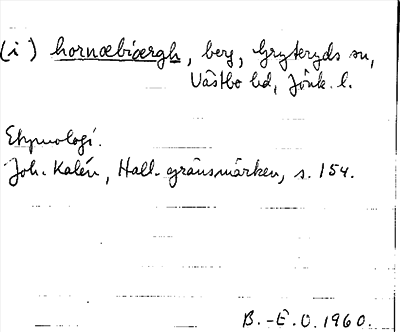 (i) hornœbiœrgh, berg, Gryteryds sn,
Västbo hd, Jönk. l.
Etymologi.
Joh. Kalén, Hall. gränsmärken, s. 154.
B.-E. O. 1960.